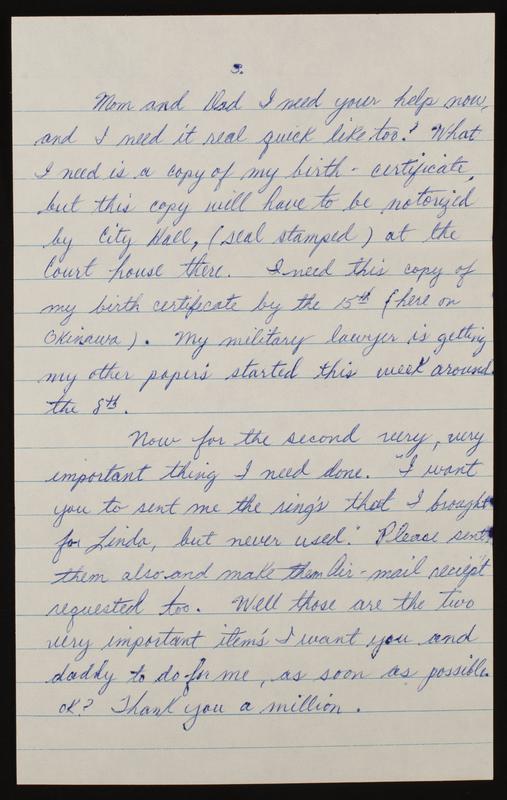 3.
Mom and Dad I need your help now,
and I need it real quick like too? What
I need is a copy of my birth - certificate,
but this copy will have to be notorized
by City Hall, (seal stamped) at the
Court house there. I need this copy of
my birth certificate by the 15th (here on
Okinawa). My military lawyer is getting
my other paper's started this week around
the 8th.
Now for the second very, very
important thing I need done. "I want
you to sent me the ring's that I brought
for Linda, but never used." Please sent
them also and make them Air-mail reciept
requested too. Well those are the two
very important item's I want you and
daddy to do for me, as soon as possible.
OK? Thank you a million.